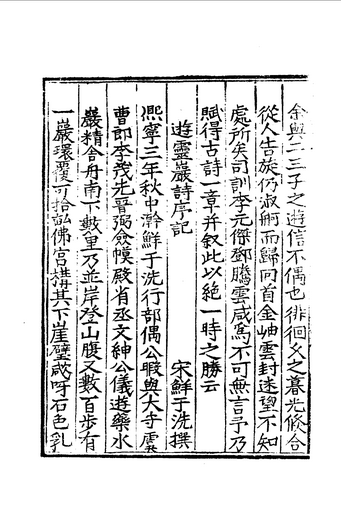 余與二三子之遊信不偶也徘徊久之暮光倐合
從人告旋仍淑舸而歸回首金岫雲封迷望不知
處所矣司訓李元傑鄧騰雲咸寫不可無言予乃
賦得古詩一章并叙此以絶一時之勝云
遊靈巖詩序記
宋鮮于洗撰
熈寧三年秋中澣鮮于洗行部偶公暇與大寺
曹郎李茂先晋弼僉幙殿省丞文紳公儀遊藥水
巖精舍舟南下數里乃並岸登山腹又數百步有
一巖環覆可拾畝佛宫構其下崖壁咸呀石色乳